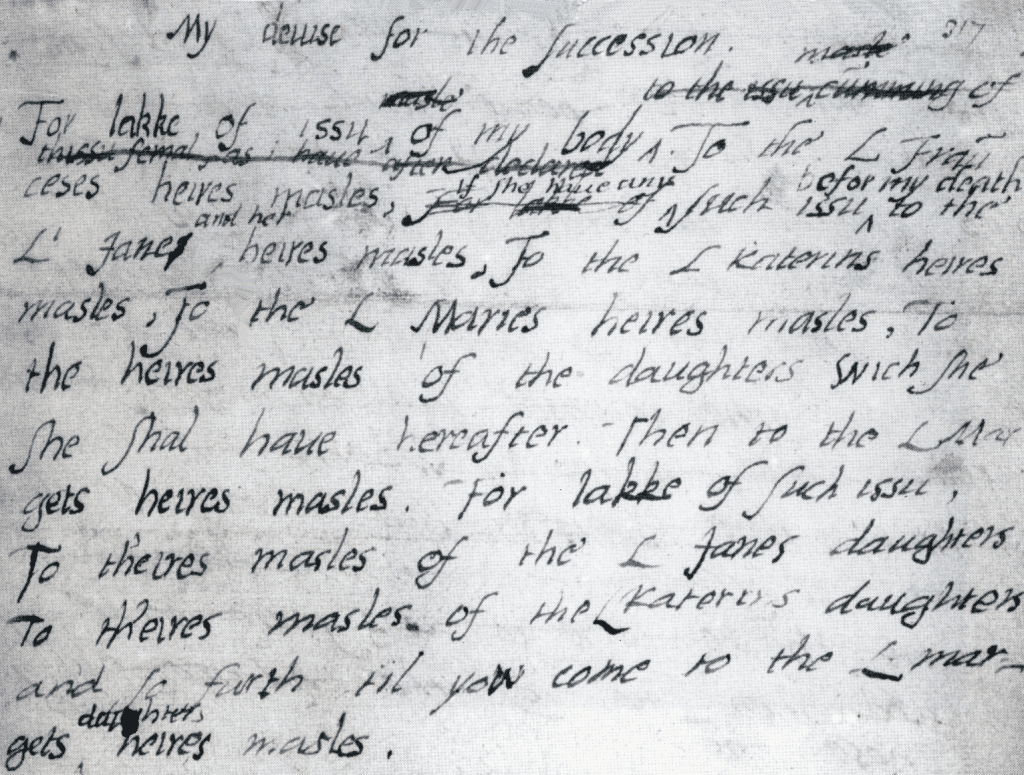 My deuise for the succession.
317
masle
to the issu cumming of
masle
For lakke of issu ^ of my body ^. To the L Frau
thissu femal, as i haue after declared
if she haue any befor my death
ceses heires masles, For lakke of ^ such issu ^ to the
and her
L' Janes heires masles, To the L Katerins heires
masles, To the L Maries heires masles, To
the heires masles of the daughters wich she
she shal haue hereafter. Then to the L Mar
gets heires masles. For lakke of such issu,
To theires masles of the L Janes daughters
To theires masles of the L Katerins daughters
and so furth til yow come to the L mar-
daughters
gets heires masles.